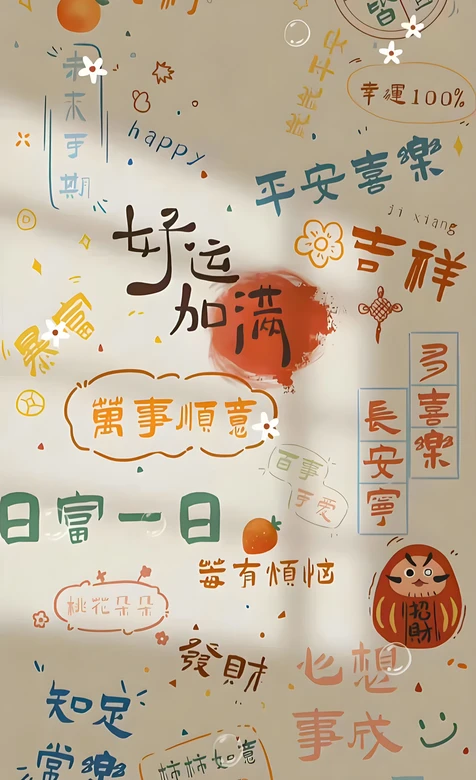 幸運100%
未来可期
happy
平安喜樂
ji xiang
吉祥
好运
加满
暴富
多喜樂
長安寧
萬事順意
百事
可爱
日富一日
莓有煩惱
桃花朵朵
招財
發財
心想
事成
知足
常樂
柿柿如意